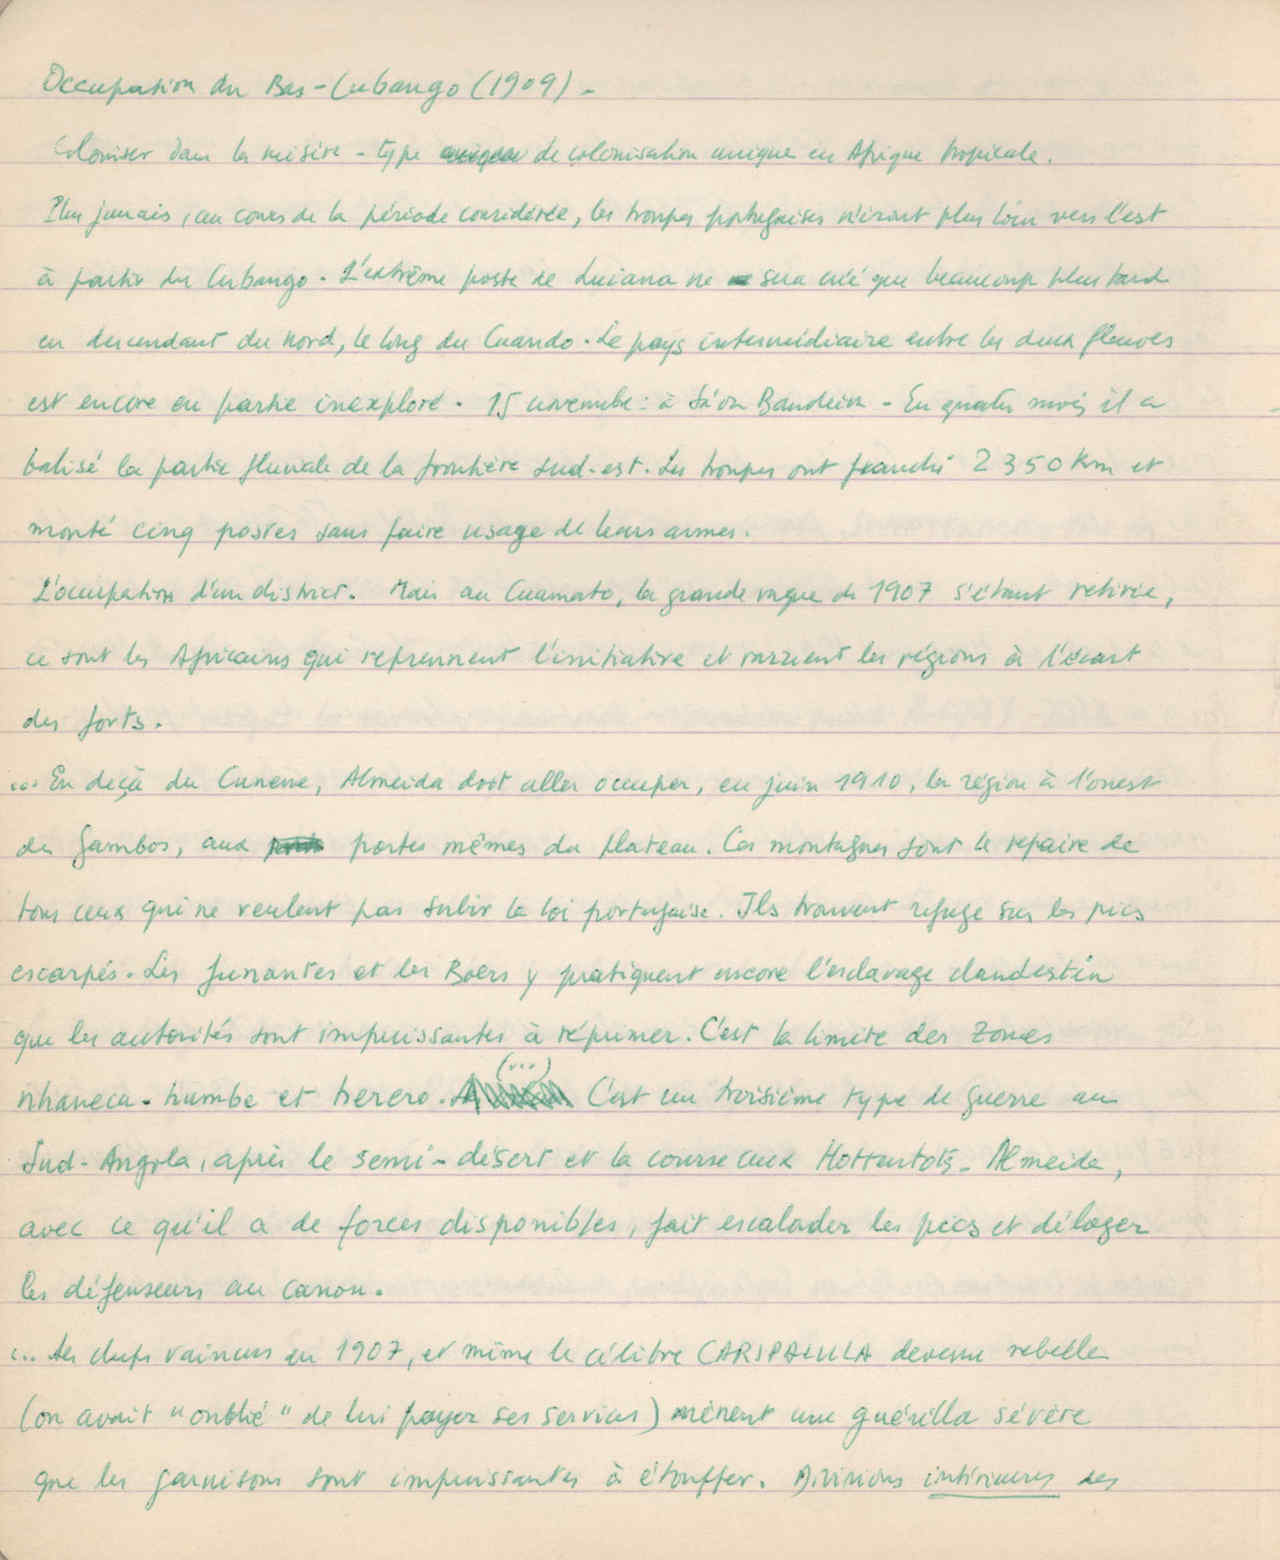 Occupation du Bas-Cubango (1909).
Coloniser dans la misère - type de colonisation unique en Afrique tropicale.
Plus jamais, au cours de la période considérée, les troupes portugaises n'iront plus loin vers l'est
à partir du Cubango. L'extrême poste de Luiana ne sera créé que beaucoup plus tard
en descendant du nord, le long du Cuando. Le pays intermédiaire entre les deux fleuves
est encore en partie inexploré. 15 novembre : à Sá da Bandeira - En quatre mois il a
balisé la partie fluviale de la frontière sud-est. Les troupes ont franchi 2350 Km et
monté cinq postes sans faire usage de leurs armes.
L'occupation d'un district. Mais au Cuamato, la grande vague de 1907 s'étant retirée,
ce sont les Africains qui reprennent l'initiative et razzient les régions à l'écart
des forts.
... En deçà du Cunene, Almeida doit aller occuper, en juin 1910, la région à l'ouest
de Gambos, aux portes mêmes du plateau. Ces montagnes sont le repaire de
tous ceux qui ne veulent pas subir la loi portugaise. Ils trouvent refuge sur les pics
escarpés. Les funantes et les Boers y pratiquent encore l'esclavage clandestin
que les autorités sont impuissantes à réprimer. C'est la limite des zones
nhaneca-humbe et herero. (...) C'est un troisième type de guerre au
Sud-Angola, après le semi-désert et la course aux Hottentots. Almeida,
avec ce qu'il a de forces disponibles, fait escalader les pics et déloger
les défenseurs au canon.
... Les chefs vaincus en 1907, et même le célèbre CARIPALULA devenu rebelle
(on avait "oublié" de lui payer ses services) mènent une guérilla sévère
que les garnisons sont impuissantes à étouffer. Divisions intérieures des